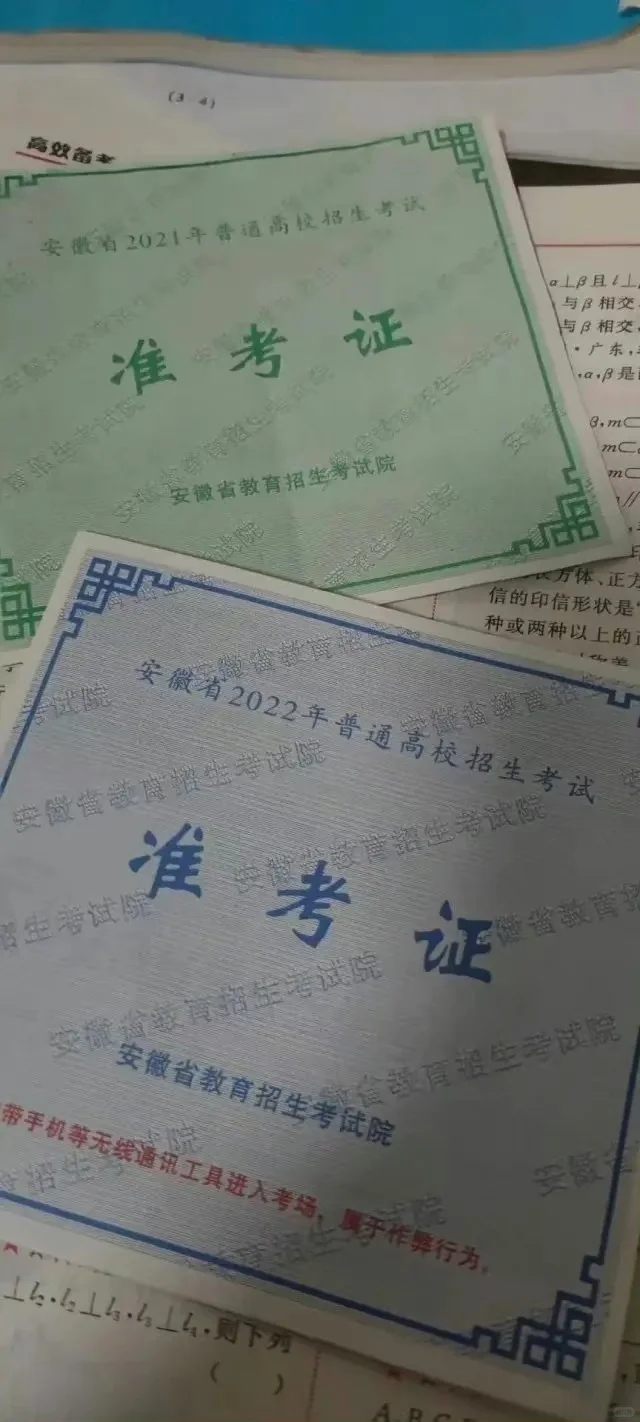 (3-4)
高效备考
安徽省2021年普通高校招生考试
准考证
安徽省教育招生考试院
α⊥β且l⊥
与β相交
与β相交,
·广东,
,α,β是
β,m⊂
m⊂
m⊂
方体、正方
信的印信形状是"
种或两种以上的正
安徽省2022年普通高校招生考试
准考证
安徽省教育招生考试院
带手机等无线通讯工具进入考场,属于作弊行为。
⊥l₂,l₂⊥l₃,l₃⊥l₄,则下列
( )